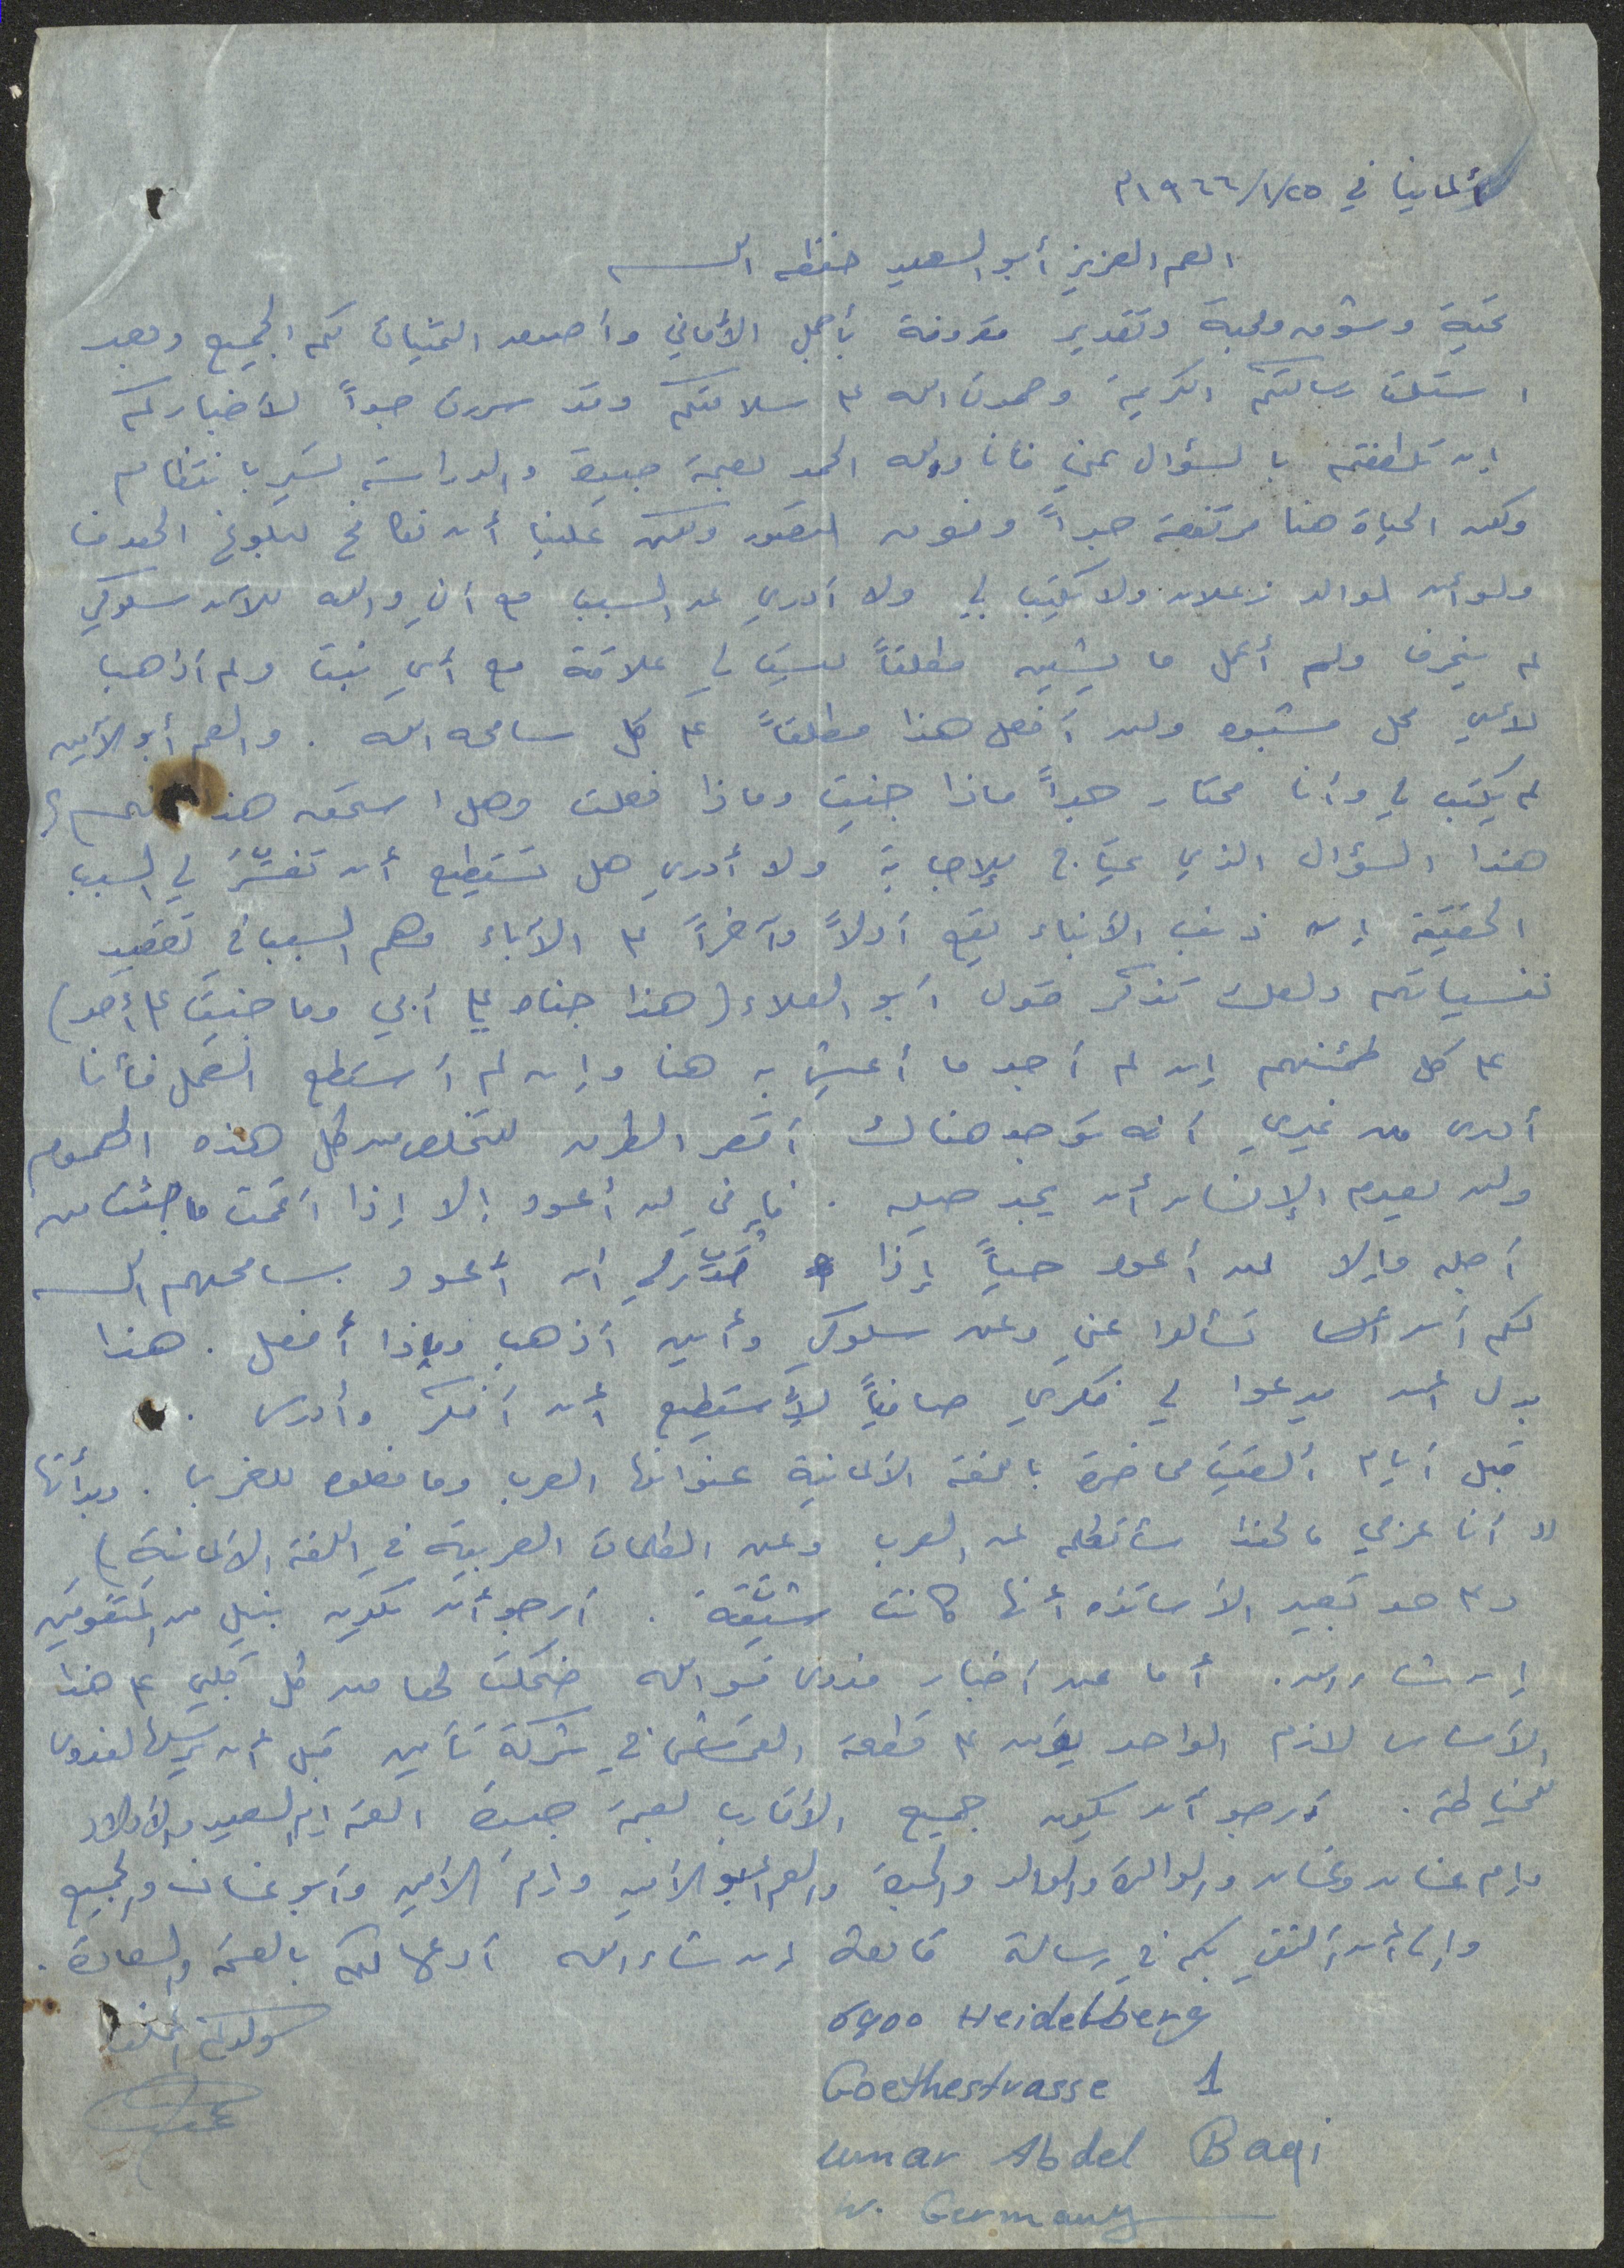 ألمانيا في ٢٥/١/١٩٦٦م
العم العزيز أبو السعيد حفظه الله
تحية وشوق ومحبة وتقدير مقرونة بأجمل الأماني وأصدق التمنيات لكم الجميع وبعد
استلمت رسالتكم الكريمة وحمدت الله على سلامتكم وقد سررت جداً لأخباركم
إن تلطفتم بالسؤال عني فأنا ولله الحمد بصحة جيدة والدراسة تسير بانتظام
ولكن الحياة هنا مرتفعة جداً وفوق التصور ولكن علينا أن نكافح لبلوغ الهدف
ولو أن الوالد زعلان ولا يكتب لي ولا أدري عن السبب مع أني والله للآن سلوكي
لم ينحرف ولم أعمل ما يشين مطلقاً ليست لي علاقة مع أي بنت ولم أذهب
لأي محل مشبوه ولن أفعل هذا مطلقاً على كل سامحه الله . والعم أبو الأمين
لم يكتب لي وأنا محتار جداً ماذا جنيت وماذا فعلت وهل استحق هذا منهم ؟
هذا السؤال الذي يحتاج للإجابة ولا أدري هل تستطيع أن تفسّر لي السبب
الحقيقة إن ذنب الأبناء يقع أولاً وآخراً على الآباء وهم السبب في تعقيد
نفسياتهم ولعلك تذكر قول أبو العلاء (هذا جناه علي أبي وما جنيت على أحد)
على كل طمئنهم إن لم أجد ما أعيش به هنا وإن لم أستطع العمل فأنا
أدرى من غيري أنه توجد هناك أقصر الطرق للتخلص من كل هذه الهموم
ولن يعدم الإنسان أن يجد حيلة . فإني لن أعود إلا إذا أتممت ما جئت من
أجله وإلا لن أعود حياً إذا قدّر لي أن أعود سامحهم الله
لكم أن تسألوا عني وعن سلوكي وأين أذهب وماذا أفعل . هذا
بدل أن يدعوا لي فكري صافياً لأستطيع أن أفكر وأدرس .
قبل أيام ألقيت محاضرة باللغة الألمانية عنوانها العرب وما فعلوه للغرب . وبدأتها
(( أنا عربي ولهذا سأتكلم عن العرب وعن الكلمات العربية في اللغة الألمانية)
وعلى حد تعبير الأساتذة أنها كانت شيّقة . أرجو أن تكون نبيل من المتفوقين
إن شاء الله . أما عن أخبار فدوى فوالله ضحكت لها من كل قلبي على هذا
الأساس لازم الواحد يؤمن على قطعة القماش في شركة تأمين قبل أن يرسلها لفدوى
للخياطة . أرجو أن يكون جميع الأقارب بصحة جيدة العمة أم السعيد والأولاد
وأم عنان وعنان والوالدة والوالد والجدة والعم أبو الأمين وأم الأمين وأبو غسان والجميع
وإلى أن ألتقي بكم في رسالة قادمة إن شاء الله أدعها لكم بالصحة والسعادة .
ولدكم المخلص
6900 Heidelberg
Goethestrasse 1
Umar Abdel Baqi
W. Germany